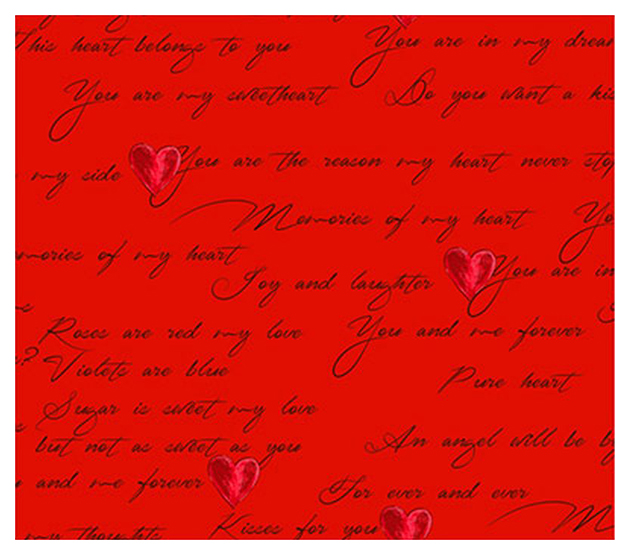 This heart belongs to you
You are in my drea
You are my sweetheart
Do you want a kis
my side
You are the reason my heart never sto
Memories of my heart
Yo
mories of my heart
Joy and laughter
You are in
Roses are red my love
You and me forever
Violets are blue
Pure heart
Sugar is sweet my love
but not as sweet as you
An angel will be b
and me forever
For ever and ever
my thoughts
Kisses for you
M